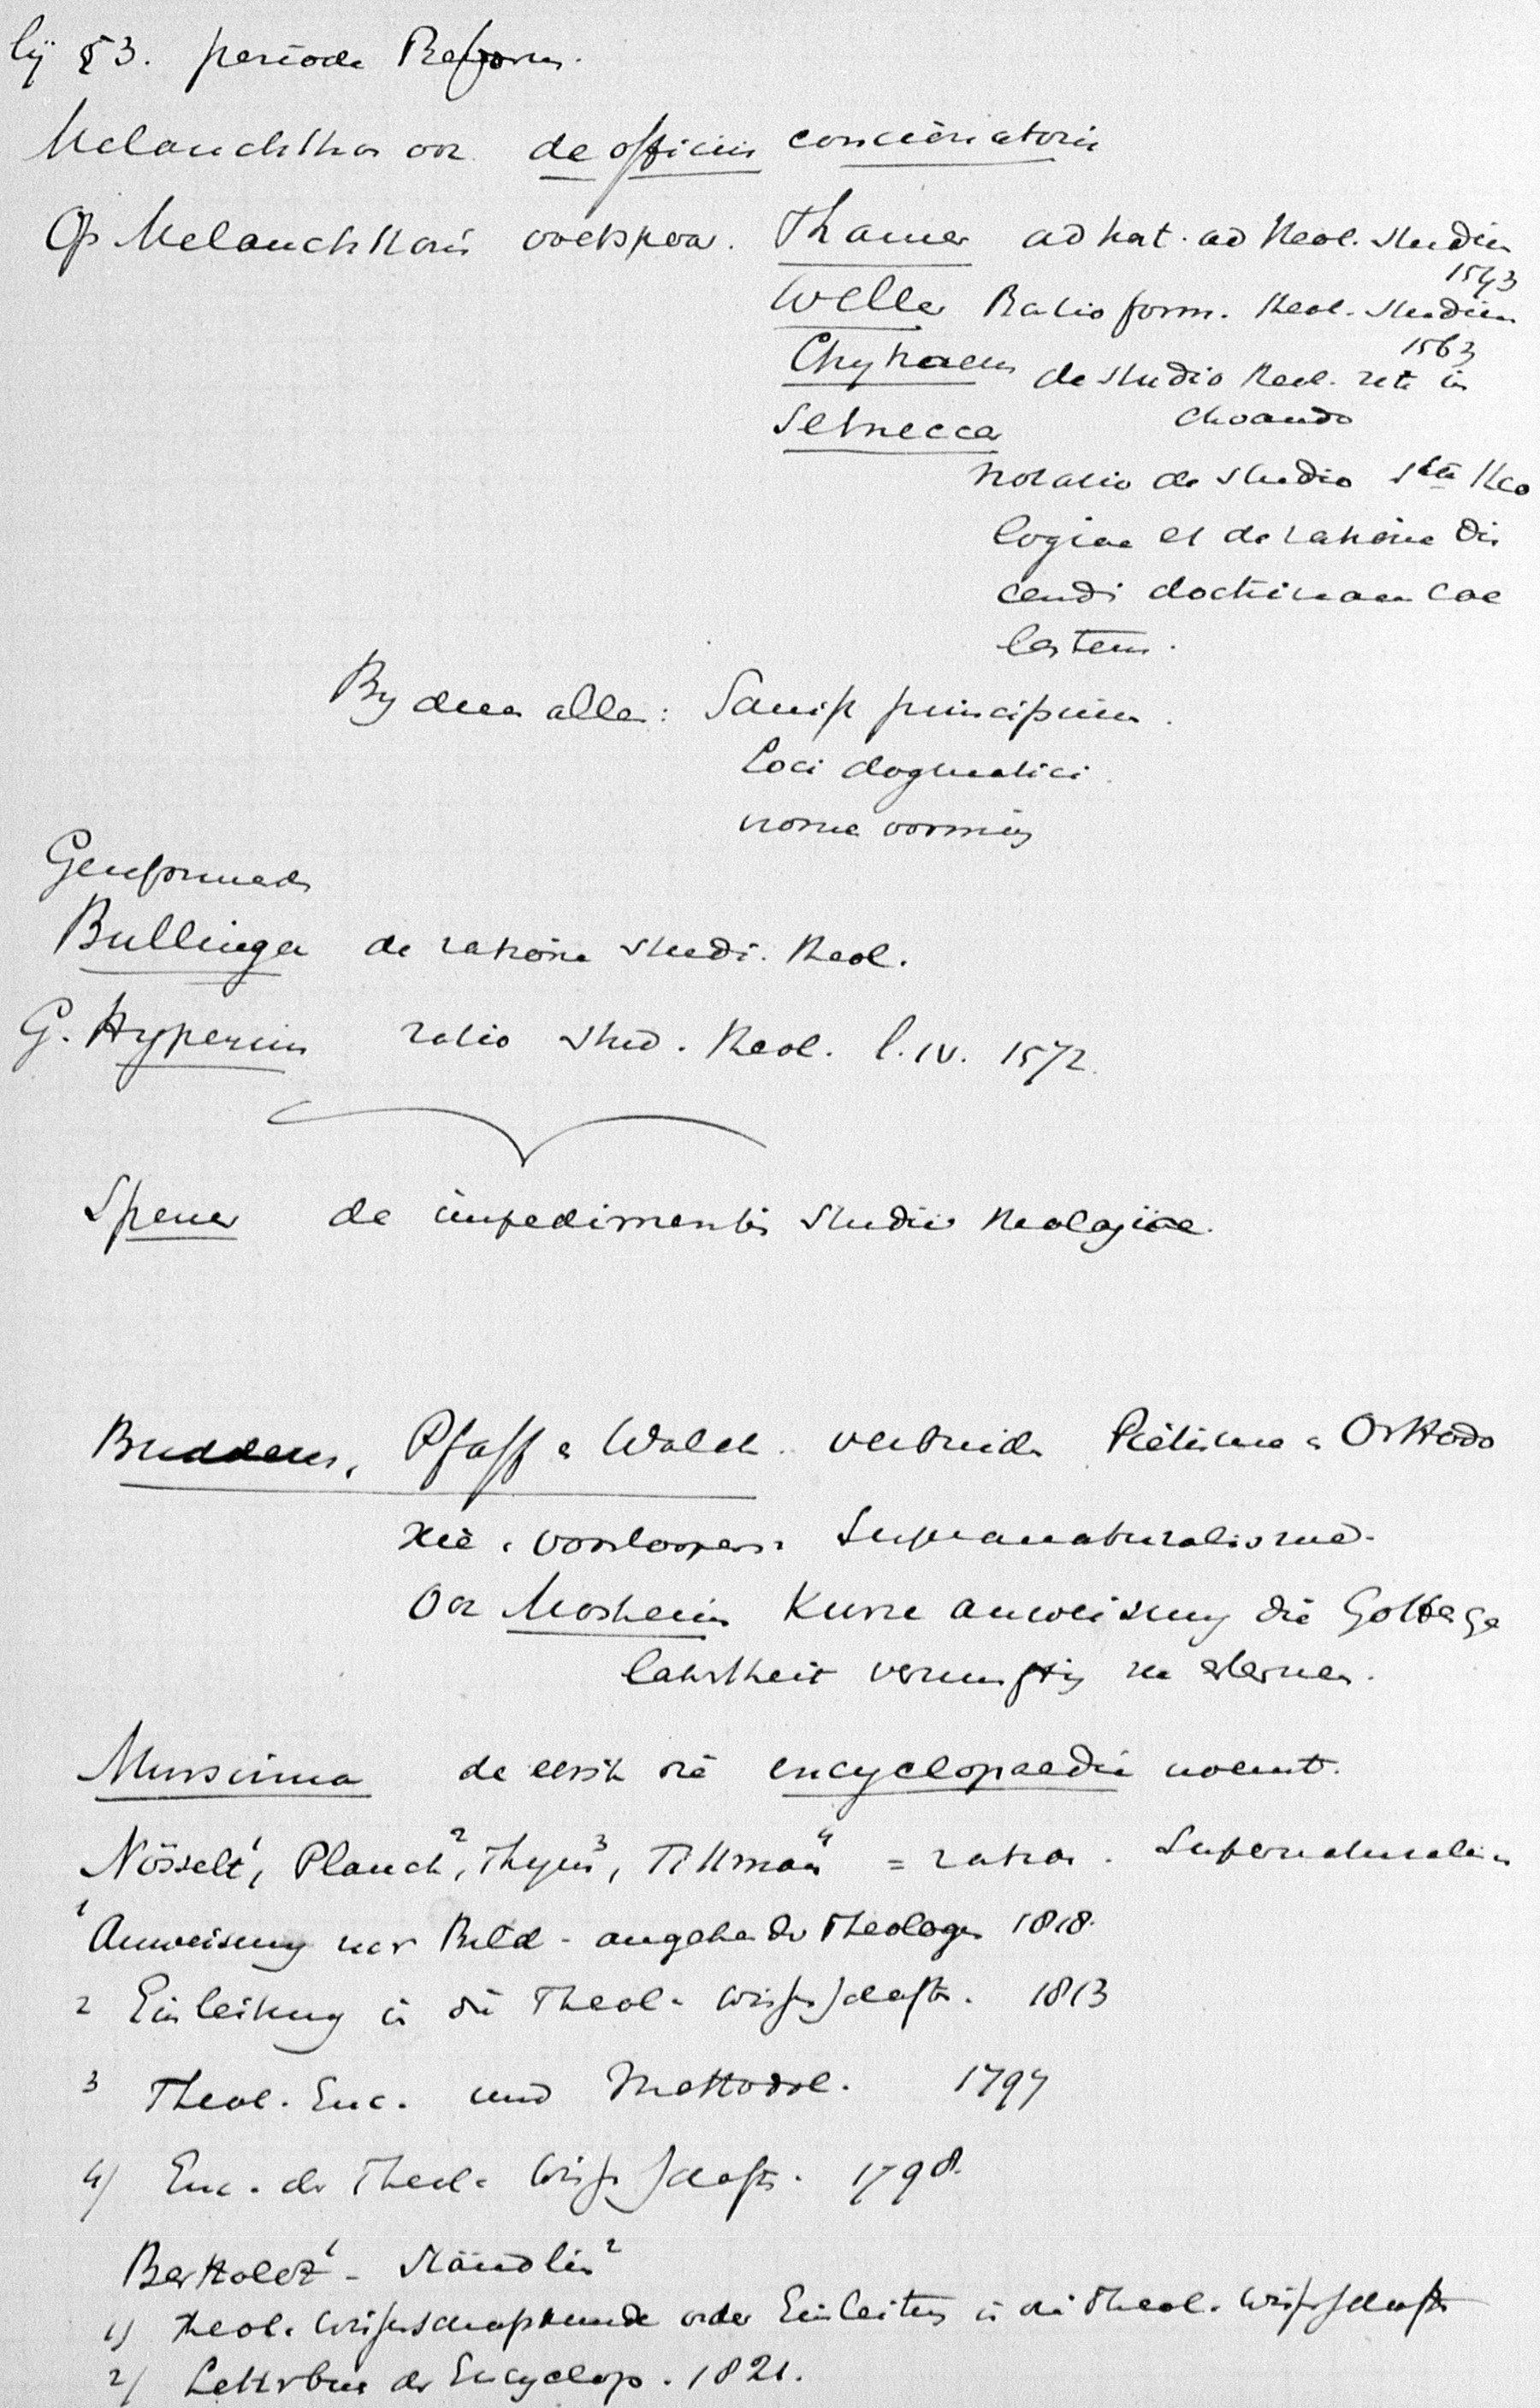 bij § 3. periode Reform.
Melanchthon ook de officiis concionatoris
Op Melanchthons voetspoor. Thamer adhort. ad theol. studium
1543
Weller Ratio form. theol. studium
1563
Chytraeus de studio theol. rite in
choando
Selneccer
notatio de studio stae theo
logiae et de ratione dis
cendi doctrinam cae
lestem.
By deze allen: Schrift principium.
Loci dogmatici.
norma vorming
Gereformeerden
Bullinger de ratione studii. theol.
G. Hyperius ratio stud. theol. l. IV. 1572.
Spener de impedimentis studii theologiae.
Buddeus, Pfaff & Walch verbinden Piëtisme & Orthodo
xie & voorloopers v. Supranaturalisme.
Ook Mosheim Kurze anweisung die Gottesge
lahrtheit vernunftig zu erlernen.
Mursinna de eerste die encyclopaedie noemt.
Nösselt¹, Planck², Thym³, Tittman⁴ = ration. Supernaturalism
¹ Anweisung zur Bild. angehender Theologen 1818.
2 Einleitung in die Theol. Wissenschaften. 1813
3 Theol. Enc. und Methodol. 1797
4) Enc. der Theol. Wissenschaften. 1798.
Bertholdt¹ - Stäudlin²
1) theol. Wissenschaftkunde oder Einleitung in die Theol. Wissenschaften
2) Lehrbuch der Encyclop. 1821.